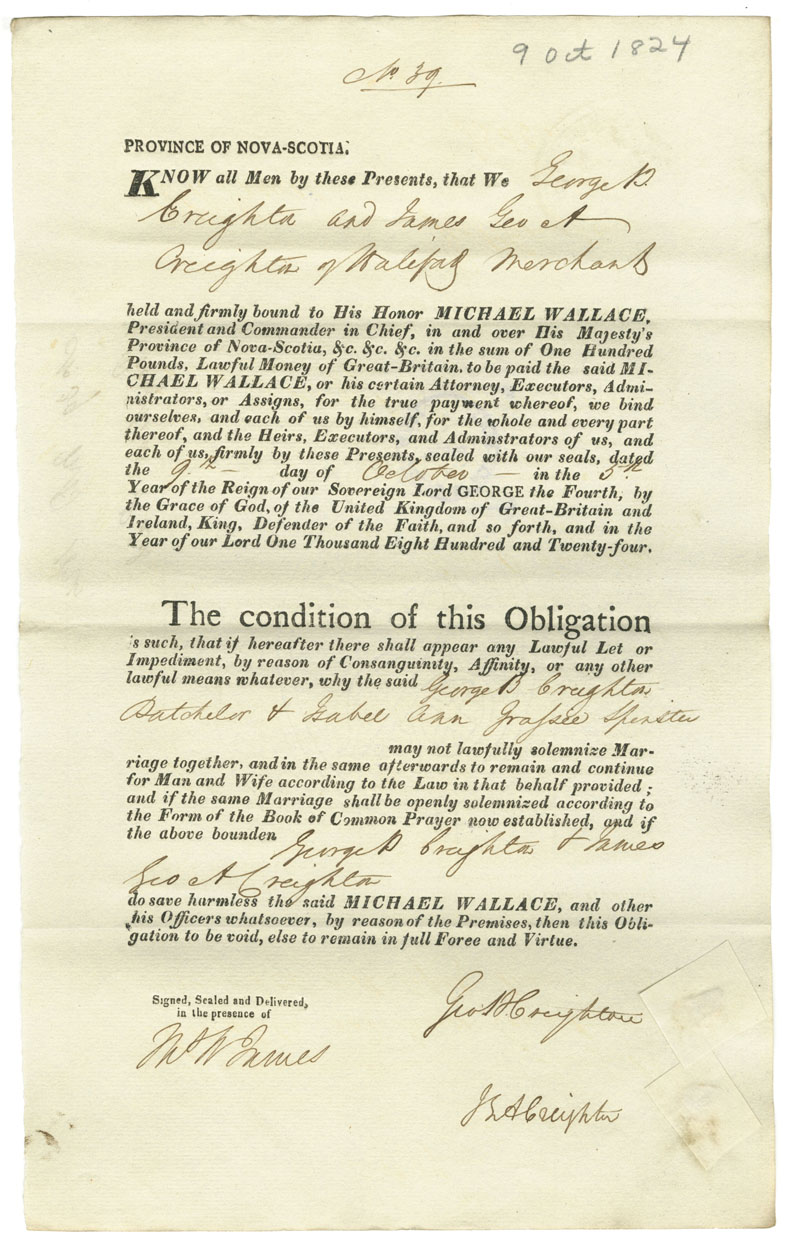 9 Oct 1824
No 39.
PROVINCE OF NOVA-SCOTIA.
KNOW all Men by these Presents, that We George D.
Creighton and James Geo A
Creighton of Halifax Merchants
held and firmly bound to His Honor MICHAEL WALLACE,
President and Commander in Chief, in and over His Majesty's
Province of Nova-Scotia, &c. &c. &c. in the sum of One Hundred
Pounds, Lawful Money of Great-Britain, to be paid the said MI-
CHAEL WALLACE, or his certain Attorney, Executors, Admi-
nistrators, or Assigns, for the true payment whereof, we bind
ourselves, and each of us by himself, for the whole and every part
thereof, and the Heirs, Executors, and Adminstrators of us, and
each of us, firmly by these Presents, sealed with our seals, dated
the 9th day of October in the 5th
Year of the Reign of our Sovereign Lord GEORGE the Fourth, by
the Grace of God, of the United Kingdom of Great-Britain and
Ireland, King, Defender of the Faith, and so forth, and in the
Year of our Lord One Thousand Eight Hundred and Twenty-four.
The condition of this Obligation
is such, that if hereafter there shall appear any Lawful Let or
Impediment, by reason of Consanguinity, Affinity, or any other
lawful means whatever, why the said George D Creighton
Batchelor & Isabel Ann Grassie Spinster
may not lawfully solemnize Mar-
riage together, and in the same afterwards to remain and continue
for Man and Wife according to the Law in that behalf provided;
and if the same Marriage shall be openly solemnized according to
the Form of the Book of Common Prayer now established, and if
the above bounden George D Creighton & James
Geo A Creighton
do save harmless the said MICHAEL WALLACE, and other
his Officers whatsoever, by reason of the Premises, then this Obli-
gation to be void, else to remain in full Force and Virtue.
Signed, Sealed and Delivered,
in the presence of
Geo D Creighton
James
Creighton